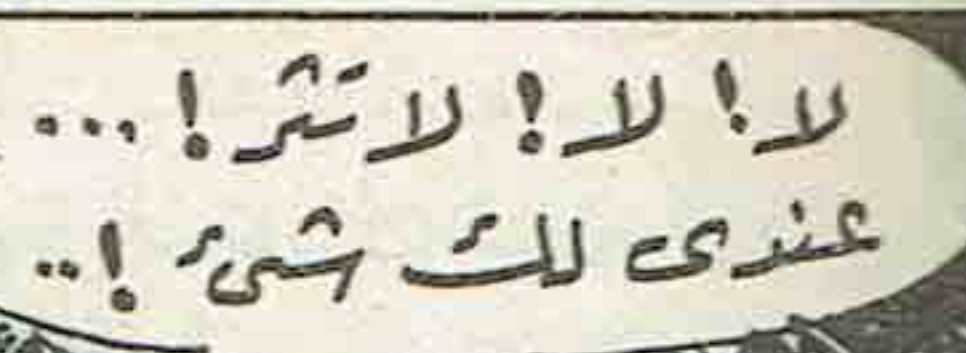 لا! لا! لا تثر!...
عندى لك شئ!..